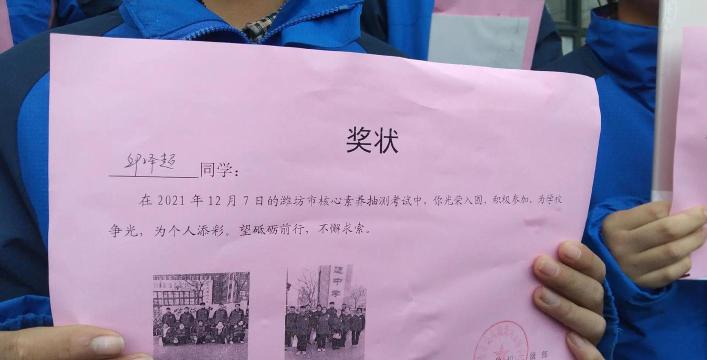 奖状
邱泽超 同学：
在 2021 年 12 月 7 日的潍坊市核心素养抽测考试中，你光荣入围，积极参加，为学校
争光，为个人添彩。望砥砺前行，不懈求索。